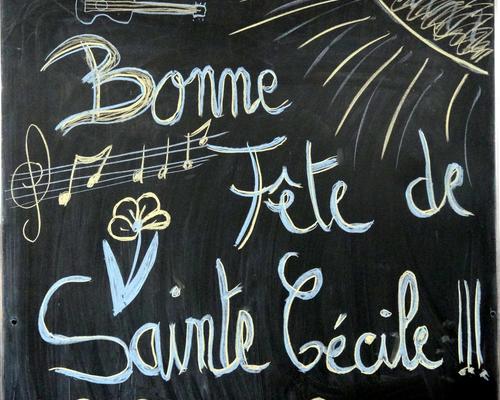 Bonne
Fête de
Sainte Cécile !!!